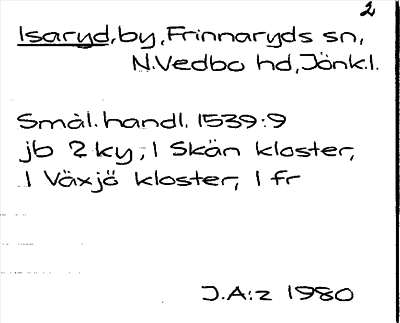 2
Isaryd, by, Frinnaryds sn,
N.Vedbo hd, Jönk.l.
Smål. handl. 1539:9
jb 2 ky; 1 Skän kloster,
1 Växjö kloster, 1 fr
J.A:z 1980